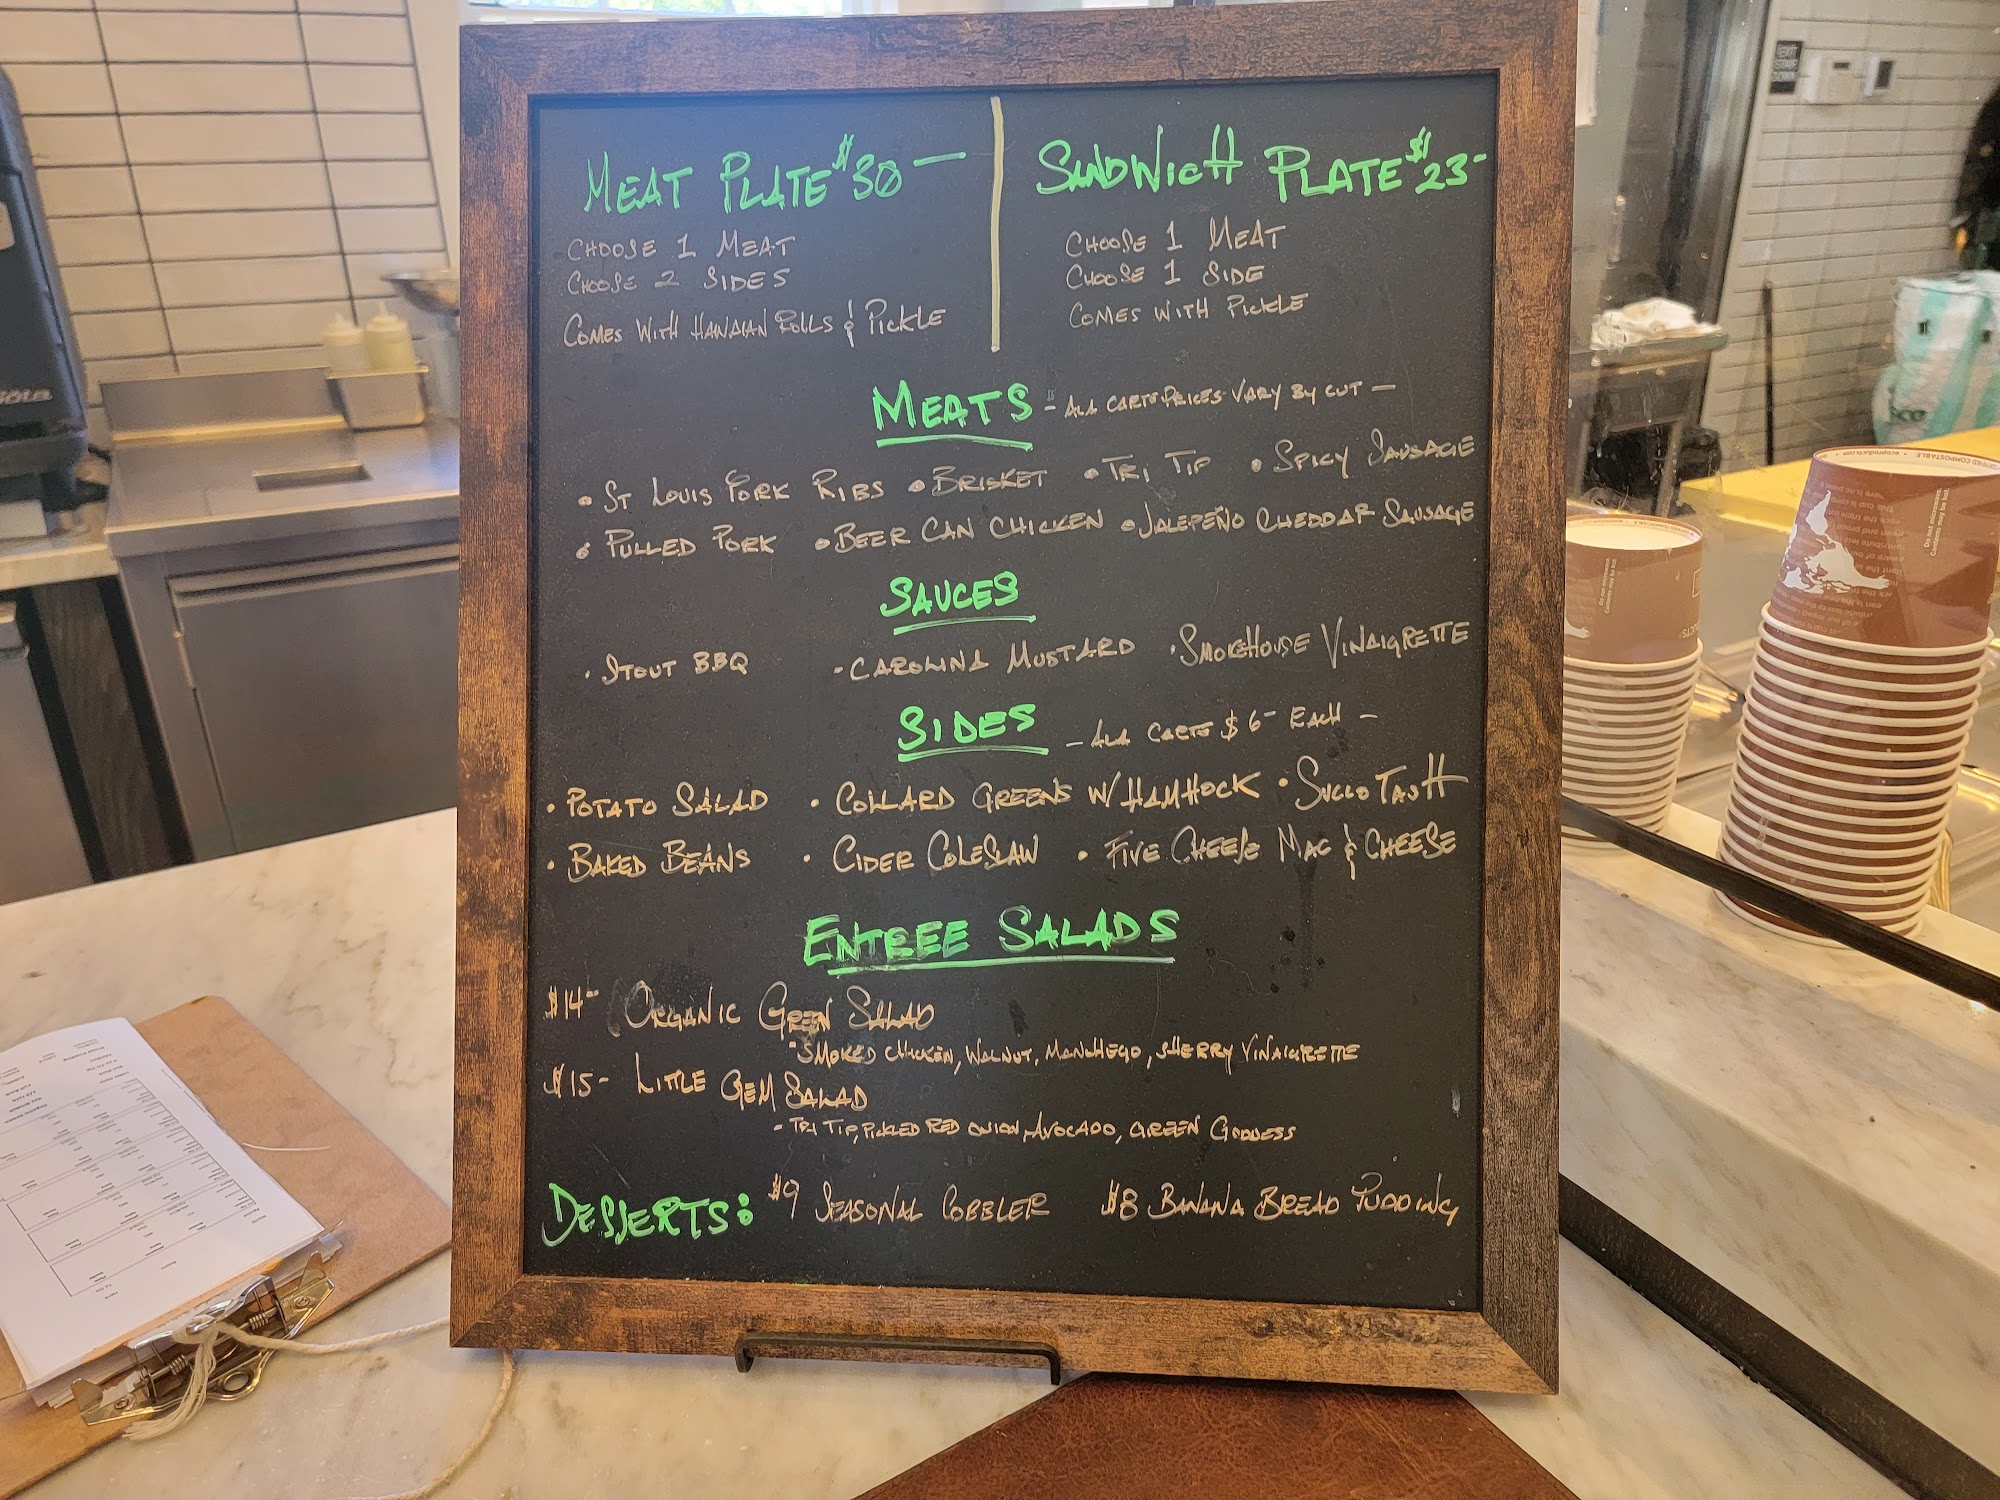 MEAT PLATE $30 —
CHOOSE 1 MEAT
CHOOSE 2 SIDES
COMES WITH HAWAIAN ROLLS & PICKLE
SANDWICH PLATE $23-
CHOOSE 1 MEAT
CHOOSE 1 SIDE
COMES WITH PICKLE
MEATS - ALA CARTE PRICES VARY BY CUT -
• ST LOUIS PORK RIBS • BRISKET • TRI TIP • SPICY SAUSAGE
• PULLED PORK • BEER CAN CHICKEN • JALEPEÑO CHEDDAR SAUSAGE
SAUCES
• STOUT BBQ - CAROLINA MUSTARD • SMOKEHOUSE VINAIGRETTE
SIDES - ALA CARTE $6- EACH -
• POTATO SALAD • COLLARD GREENS W/ HAMHOCK • SUCCOTASH
• BAKED BEANS • CIDER COLESLAW • FIVE CHEESE MAC & CHEESE
ENTREE SALADS
$14- ORGANIC GREEN SALAD
- SMOKED CHICKEN, WALNUT, MANCHEGO, SHERRY VINAIGRETTE
$15- LITTLE GEM SALAD
- TRI TIP, PICKLED RED ONION, AVOCADO, GREEN GODDESS
DESSERTS: $9 SEASONAL COBBLER $8 BANANA BREAD PUDDING